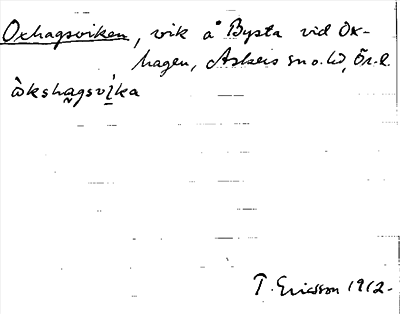 Oxhagsviken, vik å Bysta vid Ox-
hagen, Askers sn o. hd, Ör. l.
òkshagsvíka
T. Ericsson 1912.